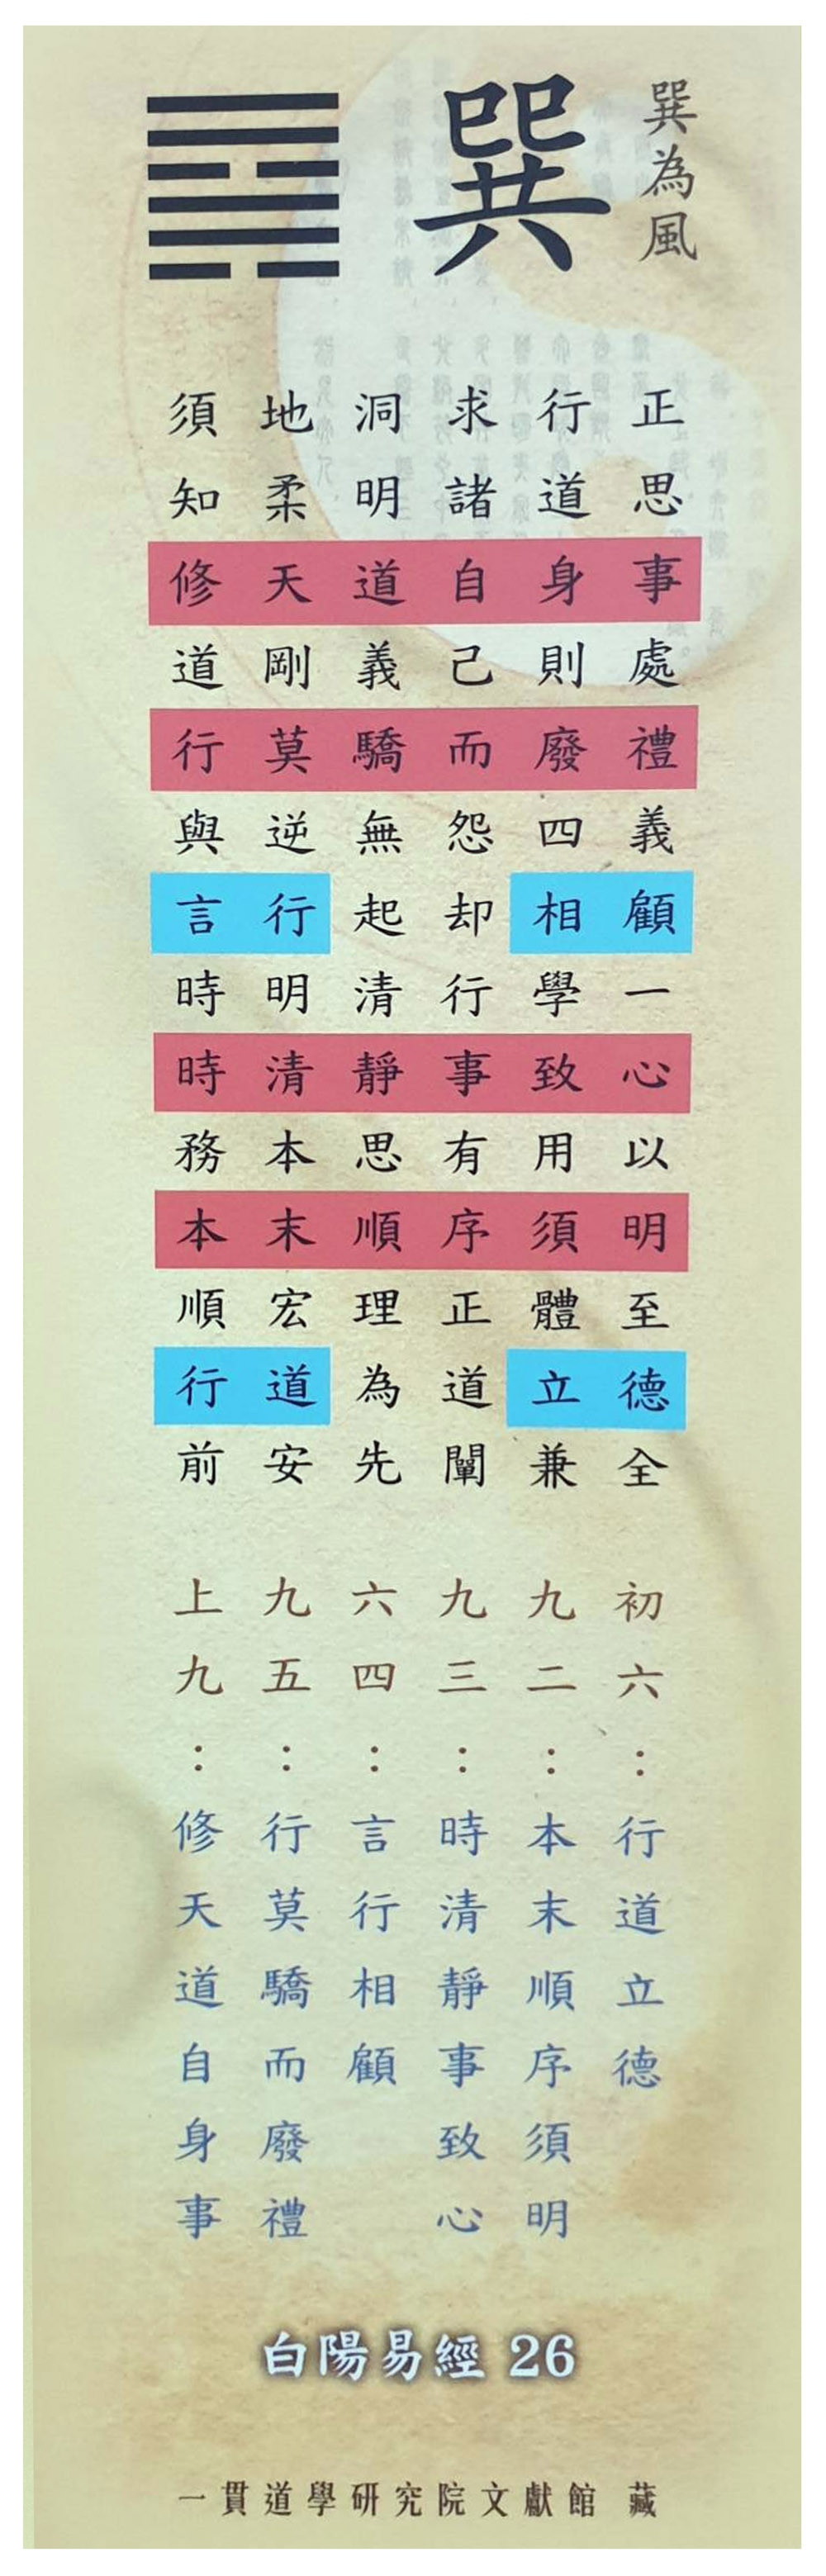 巽為風
巽
正思事處禮義顧一心以明至德全
行道身則廢四相學致用須體立兼
求諸自己而怨却行事有序正道闡
洞明道義驕無起清靜思順理為先
地柔天剛莫逆行明清本末宏道安
須知修道行與言時時務本順行前
初六：行道立德
九二：本末順序須明
九三：時清靜事致心
六四：言行相顧
九五：行莫驕而廢禮
上九：修天道自身事
白陽易經 26
一貫道學研究院文獻館 藏